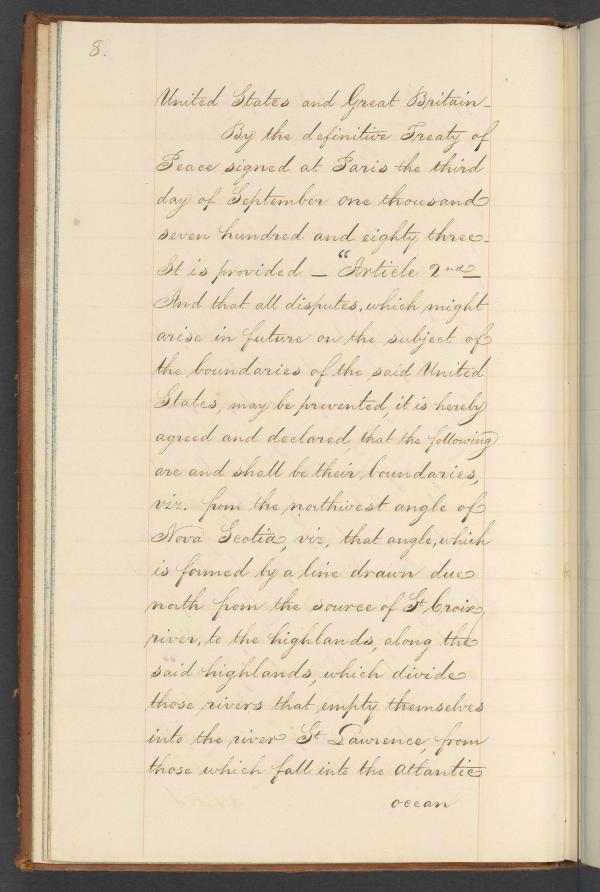 8.
United States and Great Britain_
By the definitive Treaty of
Peace signed at Paris the third
day of September one thousand
seven hundred and eighty three.
It is provided — "Article 2nd —
And that all disputes, which might
arise in future on the subject of
the boundaries of the said United
States, may be prevented, it is hereby
agreed and declared, that the following
are and shall be their boundaries,
viz. from the northwest angle of
Nova Scotia, viz, that angle, which
is formed by a line drawn due
north from the source of St Croix
river, to the highlands, along the
said highlands, which divide
those rivers that empty themselves
into the river St Lawrence, from
those which fall into the Atlantic
ocean